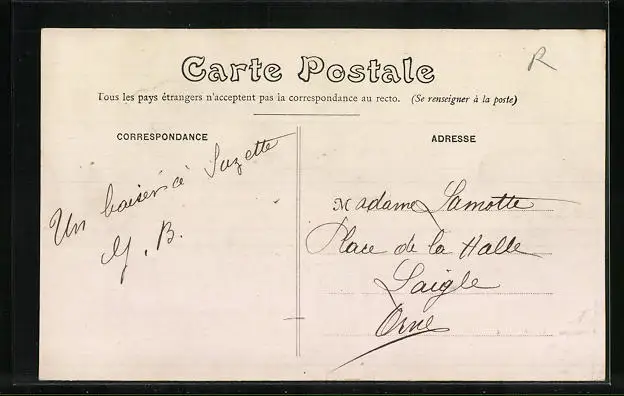 Carte Postale
R
Tous les pays étrangers n'acceptent pas la correspondance au recto. (Se renseigner à la poste)
CORRESPONDANCE
Un baiser à Suzette
M. B.
ADRESSE
Madame Lamotte
Place de la Halle
Laigle
Orne